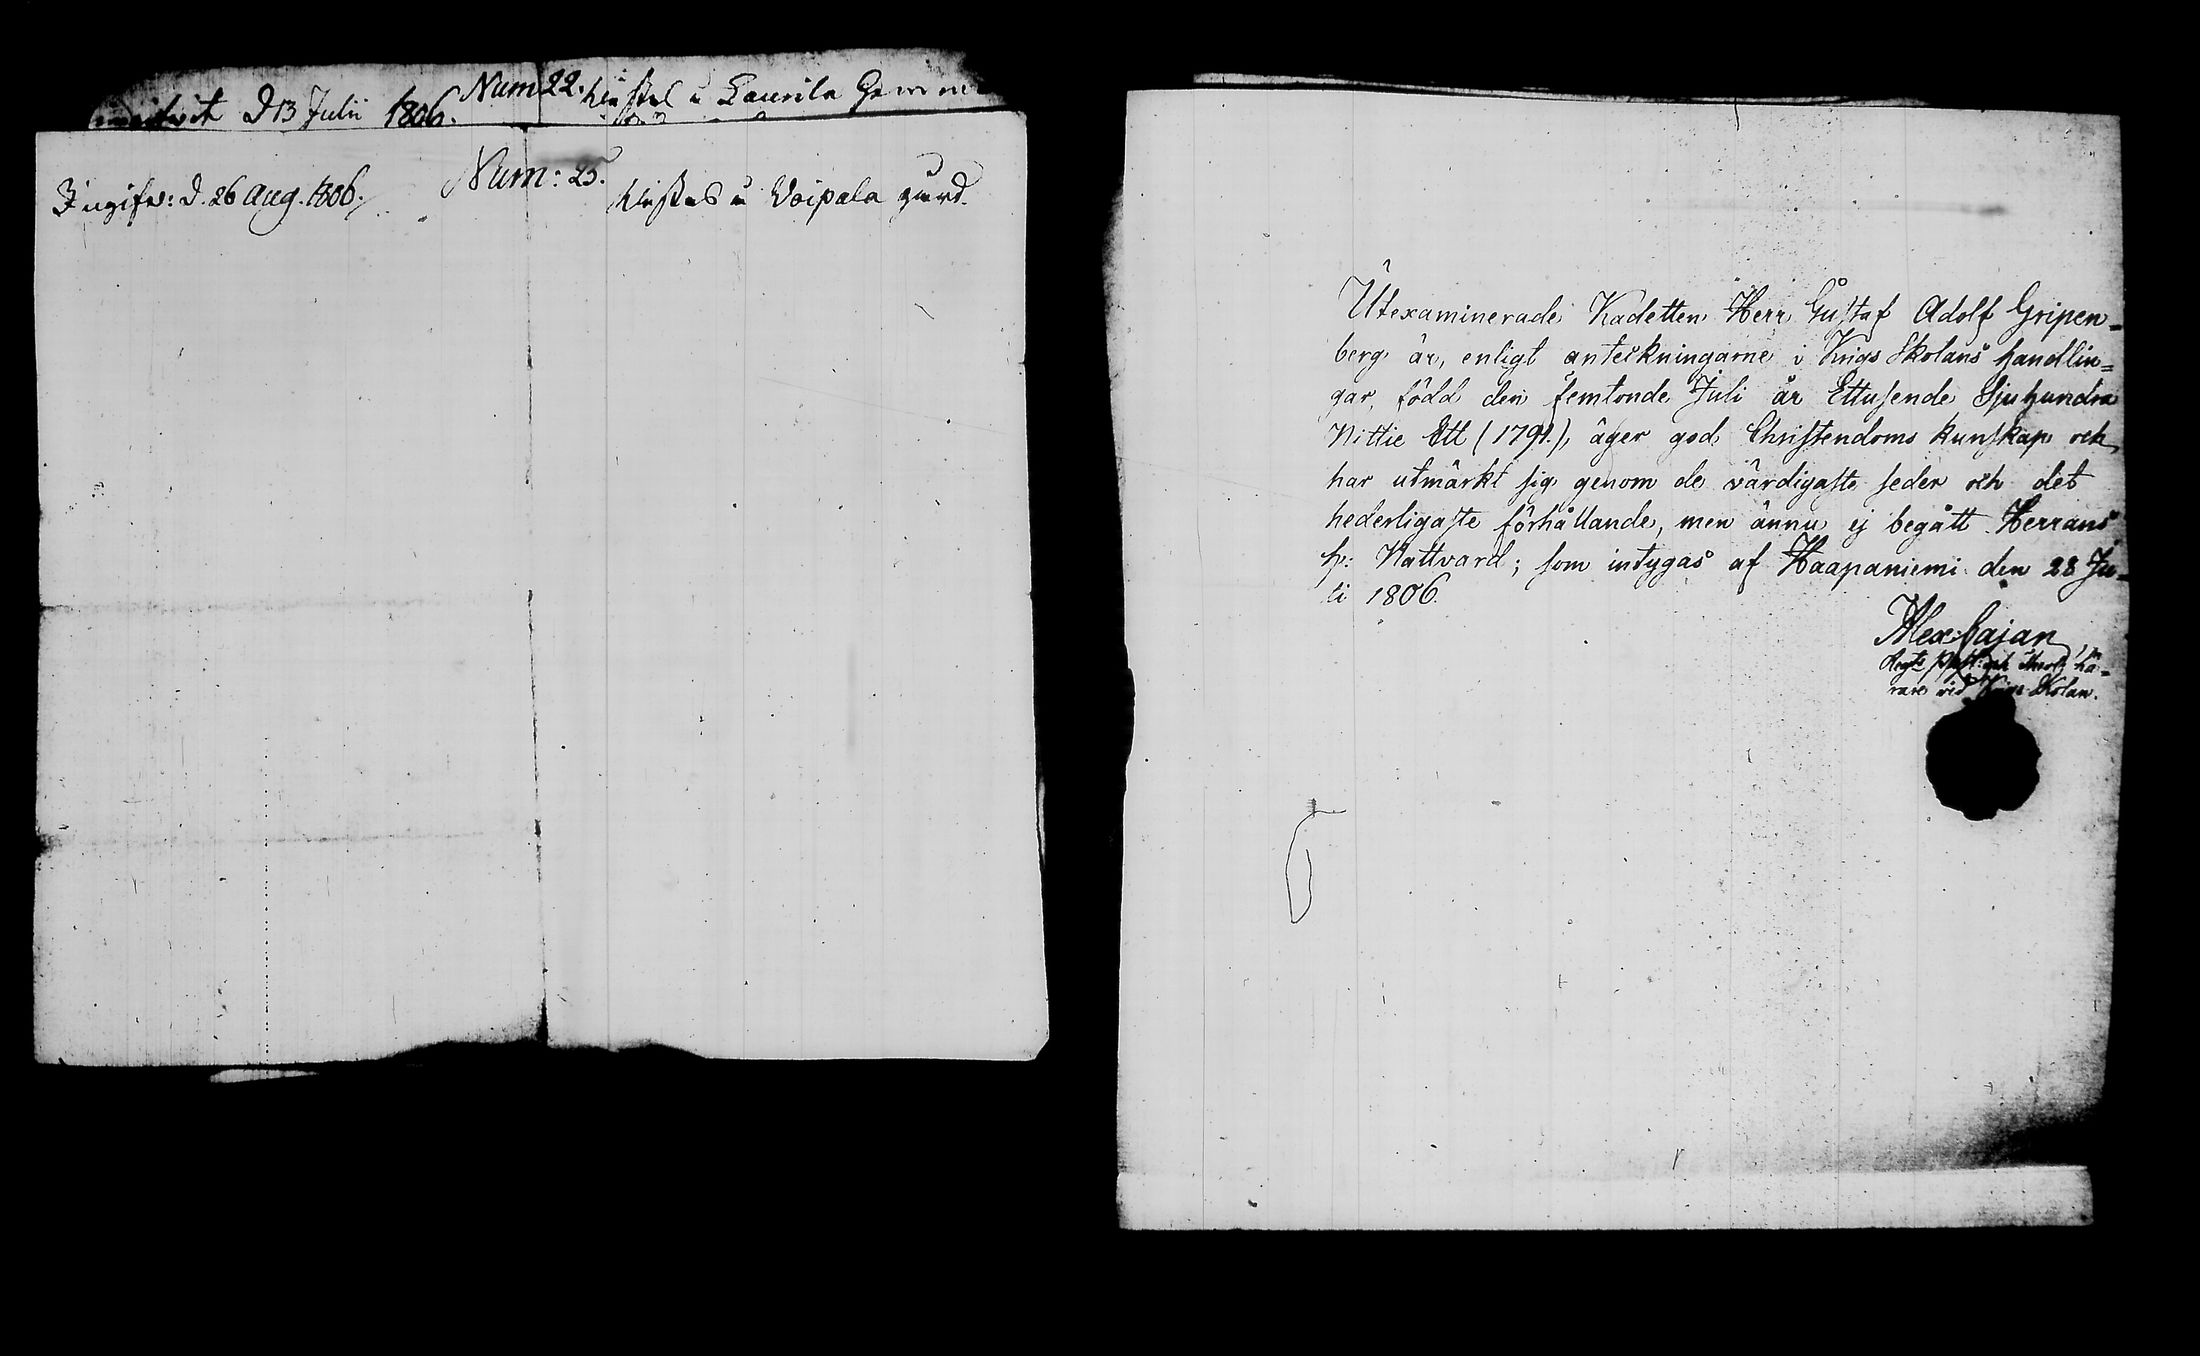 d 13 Julii 1806. Num 22. Laurila
Ingifv: d. 26 Aug. 1806. Num: 25. Voipala gård.
Utexaminerade Kadetten Herr Gustaf Adolf Gripen=
berg är, enligt anteckningarne i Krigs Skolans handlin=
gar, född den femtonde Juli år Ettusende Sjuhundra
Nittie Ett (1791.), äger god Christendoms kunskap och
har utmärkt sig genom de värdigaste seder och det
hederligaste förhållande, men ännu ej begått Herrans
h: Nattvard; som intygas af Haapaniemi den 28 Ju=
li 1806.
Alex Cajan
Regts Past: och Theol: Lä=
rare vid Krigs Skolan.